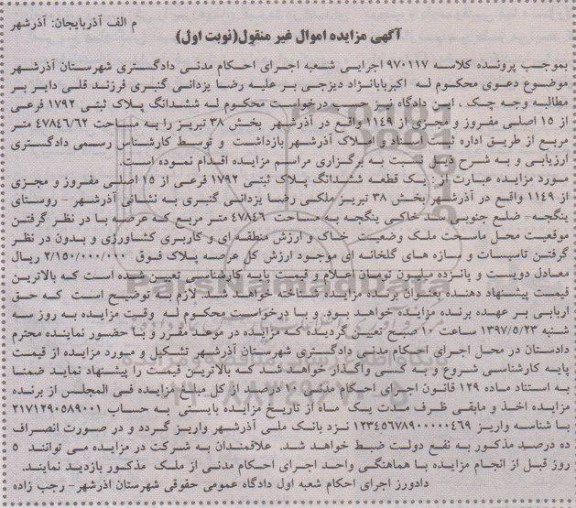 م الف آذربایجان: آذرشهر
آگهی مزایده اموال غیر منقول(نوبت اول)
بموجب پرونده کلاسه ۹۷۰۱۱۷ اجرایی شعبه اجرای احکام مدنی دادگستری شهرستان آذرشهر
موضوع دعوی محکوم له اکبربابانژاد دیزجی بر علیه رضا یزدانی گنبری فرزند قلی دایر بر
مطالبه وجه چک ، این دادگاه نیز حسب درخواست محکوم له ششدانگ پلاک ثبتی ۱۷۹۲ فرعی
از ۱۵ اصلی مفروز و مجزی از ۱۱۴۹ واقع در آذرشهر بخش ۳۸ تبریز را به مساحت ۴۷۸۴۶/۶۲ متر
مربع از طریق اداره ثبت اسناد و املاک آذرشهر بازداشت و توسط کارشناس رسمی دادگستری
ارزیابی و به شرح ذیل نسبت به برگزاری مراسم مزایده اقدام نموده است.
مورد مزایده عبارت از: یک قطعه ششدانگ پلاک ثبتی ۱۷۹۲ فرعی از ۱۵ اصلی مفروز و مجزی
از ۱۱۴۹ واقع در آذرشهر بخش ۳۸ تبریز ملکی رضا یزدانی گنبری به نشانی آذرشهر - روستای
ینگجه- ضلع جنوبی خاکی ینگجه به مساحت ۴۷۸۴۶ متر مربع که عرصه با در نظر گرفتن
موقعیت محل ماسبت ملک وضعیت خاک و ارزش منطقه ای و کاربری کشاورزی و بدون در نظر
گرفتن تاسیسات و سازه های گلخانه ای موجود ارزش کل عرصه پلاک فوق ۲/۱۵۰/۰۰۰/۰۰۰ ریال
معادل دویست و پانزده میلیون تومان اعلام و قیمت پایه کارشناسی تعیین شده است که بالاترین
قیمت پیشنهاد دهنده بعنوان برنده مزایده شناخته خواهد شد. لازم به توضیح است که حق
ارزیابی بر عهده برنده مزایده خواهد بود. و با درخواست محکوم له وقت مزایده به روز سه
شنبه ۱۳۹۷/۵/۲۳ ساعت ۱۰ صبح تعیین گردیده که مزایده در موعد مقرر و با حضور نماینده محترم
دادستان در محل اجرای احکام مدنی دادگستری شهرستان آذرشهر تشکیل و مورد مزایده از قیمت
پایه کارشناسی شروع و به کسی واگذار خواهد شد که بالاترین قیمت را پیشنهاد نماید ضمنا
به استناد ماده ۱۲۹ قانون اجرای احکام مدنی ۱۰ درصد از کل مبلغ مزایده فی المجلس از برنده
مزایده اخذ و مابقی ظرف مدت یک ماه از تاریخ مزایده بایستی به حساب ۲۱۷۱۲۹۰۵۸۹۰۰۱
با شناسه واریز ۱۲۳۴۵۶۷۸۹۰۰۰۰۰۴۶۹ نزد بانک ملی آذرشهر واریز گردد و در صورت انصراف
ده درصد مذکور به نفع دولت ضبط خواهد شد. علاقمندان به شرکت در مزایده می توانند ۵
روز قبل از انجام مزایده با هماهنگی واحد اجرای احکام مدنی از ملک مذکور بازدید نمایند.
دادورز اجرای احکام شعبه اول دادگاه عمومی حقوقی شهرستان اذرشهر- رجب زاده
ParsNamadData